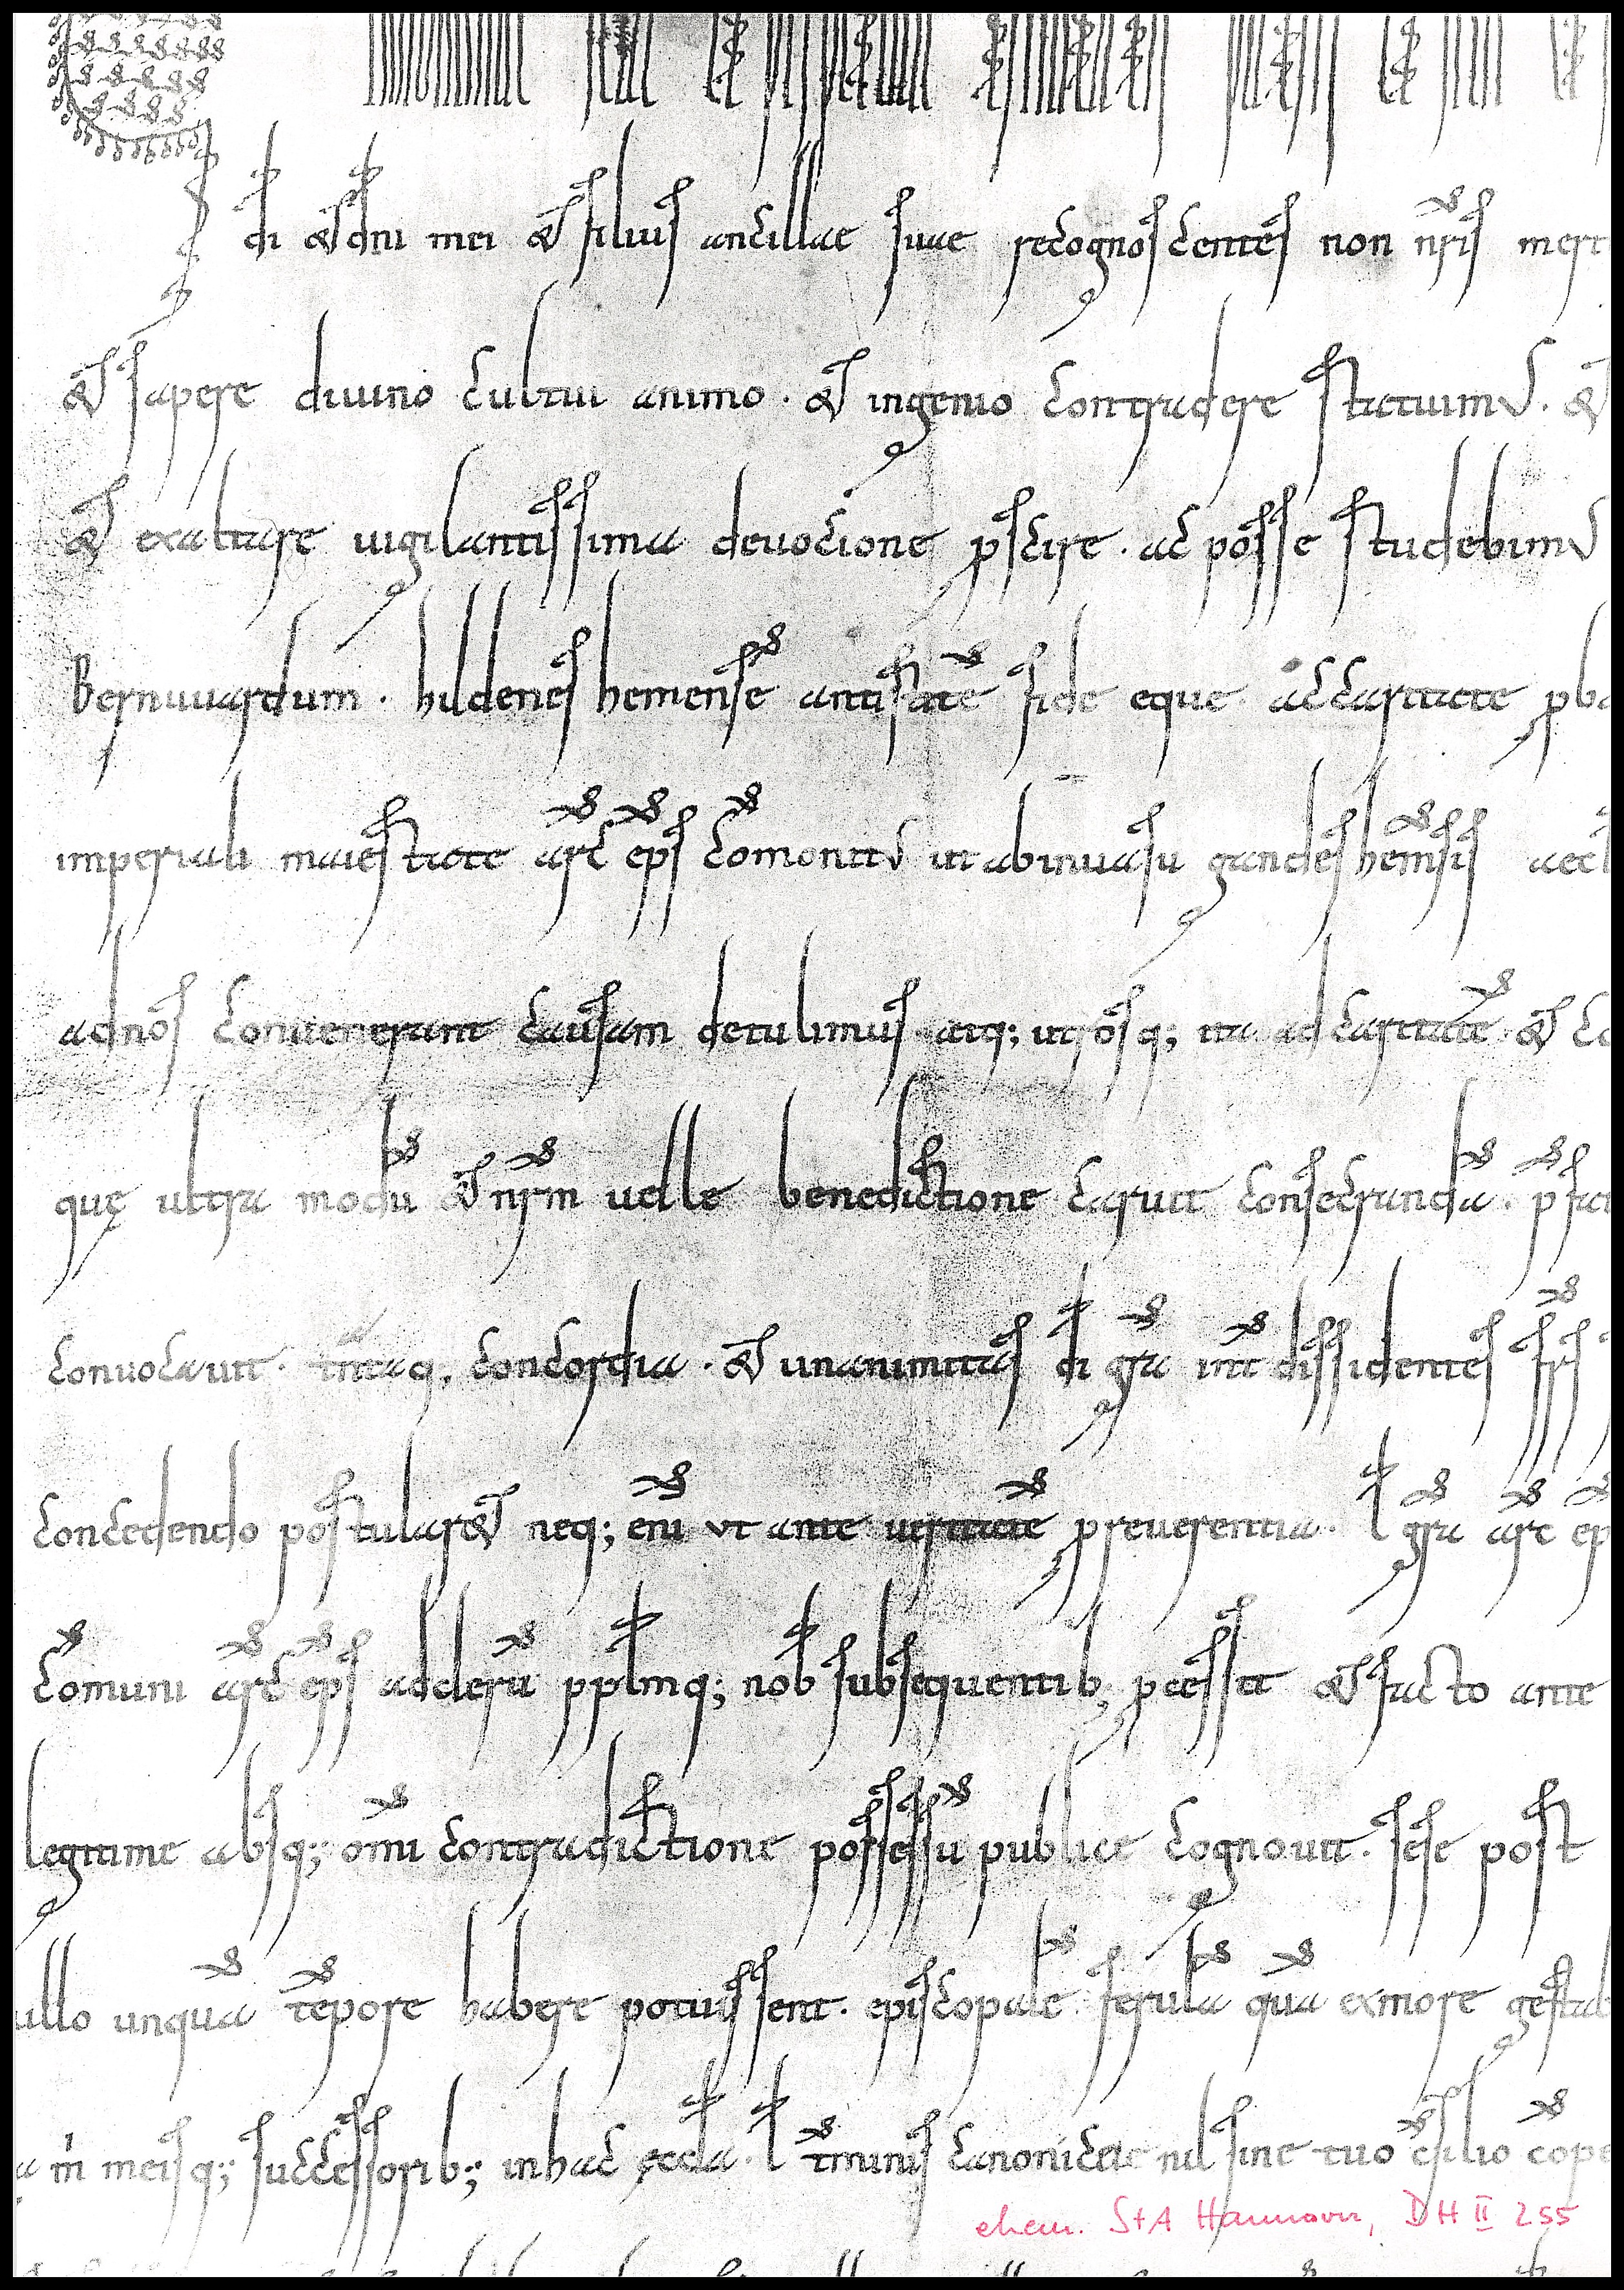 di & dni mei & filius ancillae suae recognoscentes non nris meri
& sapere diuino cultui animo · & ingenio contradere statuimus · &
& exaltare uigilantissima deuocione pscire · ac posse studebimus
Bernuuardum · hildeneshemense antistite fide eque ac caritate pba
imperiali maiestate arc eps comonitus ut ab inuasu gandeshemsis aecl
ad nos conuenerunt causam detulimus · atq; utrosq; ita ad caritate & co
quę ultra modu & nrm uelle benedictione caruit consecranda · pfat
conuocauit · tntaq; concordia · & unanimitas di gra int dissidentes frs
concedendo postular& neq; eni ut ante ueritate preuerentia · l gra arc ep
Comuni arc eps ad cleru pplmq; nob subsequentib; pcessit & facto ante
legitime absq; omi contradictione possessu publice cognouit · sese post
ullo unqua tepore habere potuissent · episcopale ferula qua ex more gestab
a m meisq; successorib; in hac eccla · l tminis canonicae nil sine tuo csilio cope
ehem. StA Hannover, DH II 255